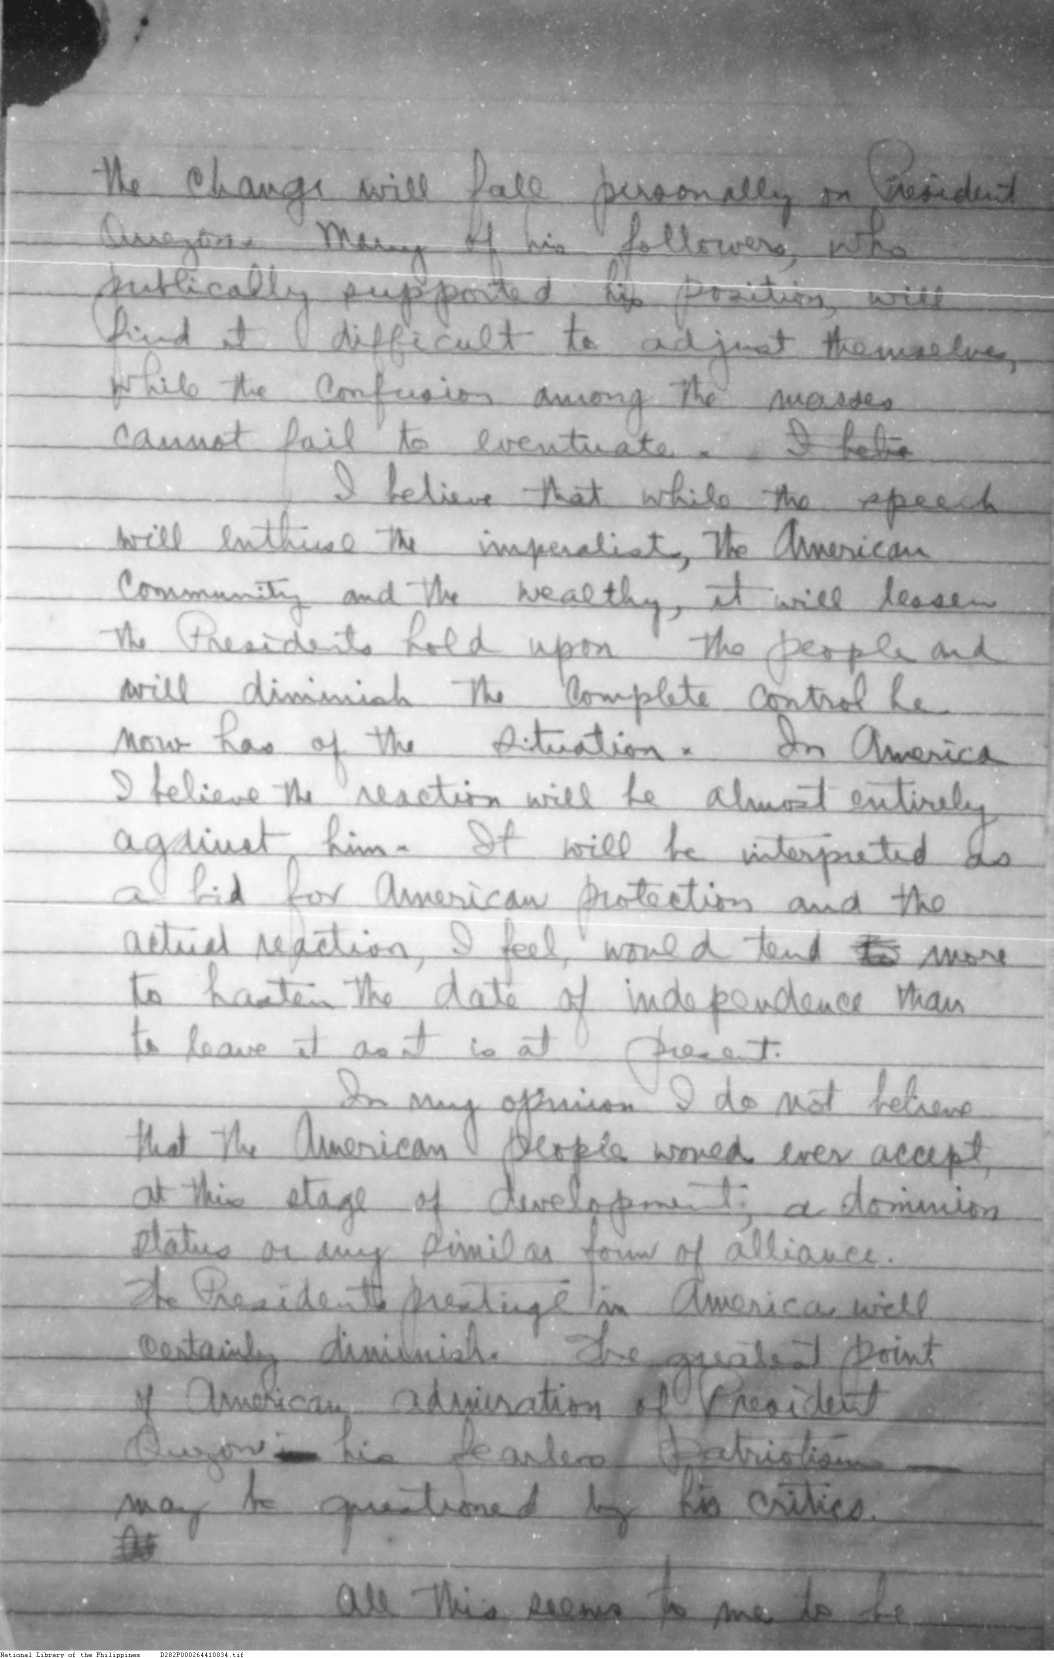 the change will fall personally on President
Quezon. Many of his followers, who
publically supported his position, will
find it difficult to adjust themselves,
while the confusion among the masses
cannot fail to eventuate. I belie
I believe that while the speech
will enthuse the imperalist, the American
Community and the wealthy, it will lessen
the Presidents hold upon the people and
will diminish the complete control he
now has of the situation. In America
I believe the reaction will be almost entirely
against him. It will be interpreted as
a bid for American protection and the
actual reaction, I feel, would tend to more
to hasten the date of independence than
to leave it as it is at present.
In my opinion I do not believe
that the American people would ever accept,
at this stage of development, a dominion
status or any similar form of alliance.
The President's prestige in America will
certainly diminish. The greatest point
of American admiration of President
Quezon - his fearless patriotism —
may be questioned by his critics.
All this seems to me to be
National Library of the Philippines D282P000264410834.tif